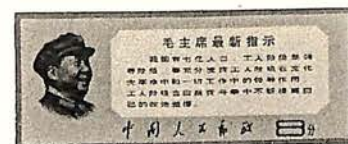 毛主席最新指示
我国有七亿人口，工人阶级是领
导阶级。要充分发挥工人阶级在文化
大革命中和一切工作中的领导作用。
工人阶级也应当在斗争中不断提高自
己的政治觉悟。
中国人民邮政 8分